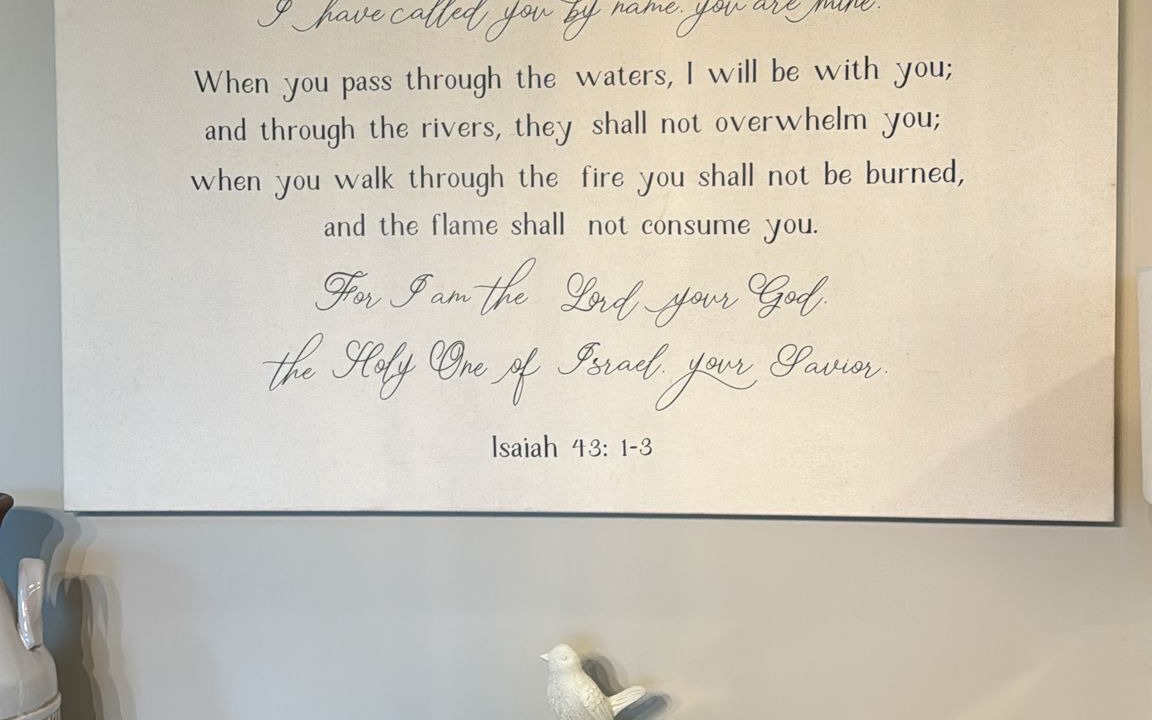 I have called you by name. you are mine.
When you pass through the waters, I will be with you;
and through the rivers, they shall not overwhelm you;
when you walk through the fire you shall not be burned,
and the flame shall not consume you.
For I am the Lord your God.
the Holy One of Israel. your Savior.
Isaiah 43: 1-3